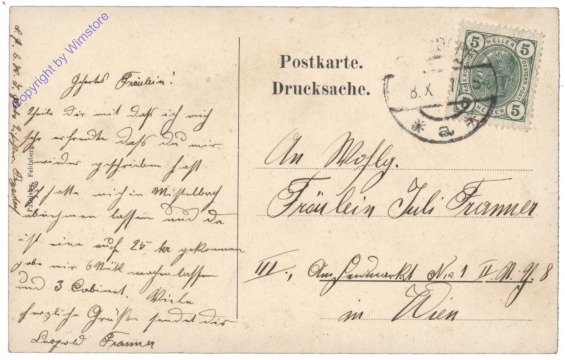 copyright by Wimstore
Postkarte.
Drucksache.
5 HELLER 5
8. X.
* a *
Geehrtes Fräulein!
Teile Dir mit daß ich mich
sehr erfreute daß du mir
wieder geschrieben hast
Ich hatte mich in Mistelbach
lassen und da
ist eine auf 25 kr gekommen
habe mir 6 Stück machen lassen
und 3 Cabinet. Viele
herzliche Grüße sendet dir
Leopold Franner
An Wohlg.
Fräulein Juli Franner
III., Am Heumarkt No 9 II. St. T. 8
in Wien